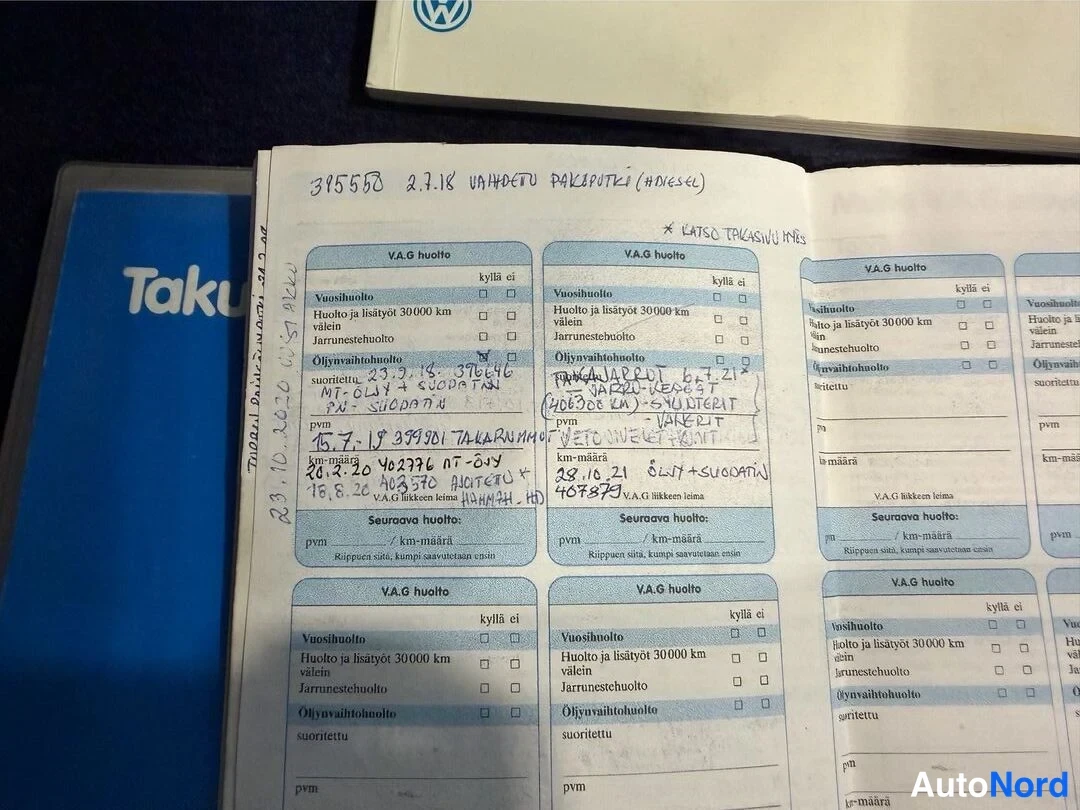 Taku
395550 2.7.18 VAIHDETTU PAKAPUTKI (ADIESEL)
* KATSO TAKASIVU MYÖS
23.10.2020 UUSI AKKU
V.A.G huolto
kyllä ei
Vuosihuolto
Huolto ja lisätyöt 30000 km
välein
Jarrunestehuolto
Öljynvaihtohuolto
suoritettu 23.9.18. 396646
MT-ÖLJY + SUODATIN
PN-SUODATIN
pvm
15.7.-19 399901 TAKARUMMUT
km-määrä
20.2.20 402776 MT-ÖLJY
18.8.20 403570 AJOITETTU *
V.A.G liikkeen leima HAMMAH. HD
Seuraava huolto:
pvm / km-määrä
Riippuen siitä, kumpi saavutetaan ensin
V.A.G huolto
kyllä ei
Vuosihuolto
Huolto ja lisätyöt 30000 km
välein
Jarrunestehuolto
Öljynvaihtohuolto
TAKAJARRUT 6.7.21*
- JARRU-KENGÄT
(406300 KM) - SYLINTERIT
pvm - VAIJERIT
km-määrä
28.10.21 ÖLJY + SUODATIN
407879 V.A.G liikkeen leima
Seuraava huolto:
pvm / km-määrä
Riippuen siitä, kumpi saavutetaan ensin
V.A.G huolto
kyllä ei
pvm
km-määrä
V.A.G liikkeen leima
Seuraava huolto:
pvm / km-määrä
Riippuen siitä, kumpi saavutetaan ensin
Vuosihuolto
Huolto ja
välein
Jarruneste
Öljynvaihto
suoritettu
pvm
km-mää
pvm
V.A.G huolto
kyllä ei
Vuosihuolto
Huolto ja lisätyöt 30000 km
välein
Jarrunestehuolto
Öljynvaihtohuolto
suoritettu
pvm
V.A.G huolto
kyllä ei
Vuosihuolto
Huolto ja lisätyöt 30000 km
välein
Jarrunestehuolto
Öljynvaihtohuolto
suoritettu
pvm
V.A.G huolto
kyllä ei
Vuosihuolto
Huolto ja lisätyöt 30000 km
välein
Jarrunestehuolto
Öljynvaihtohuolto
suoritettu
pvm
km-määrä
AutoNord